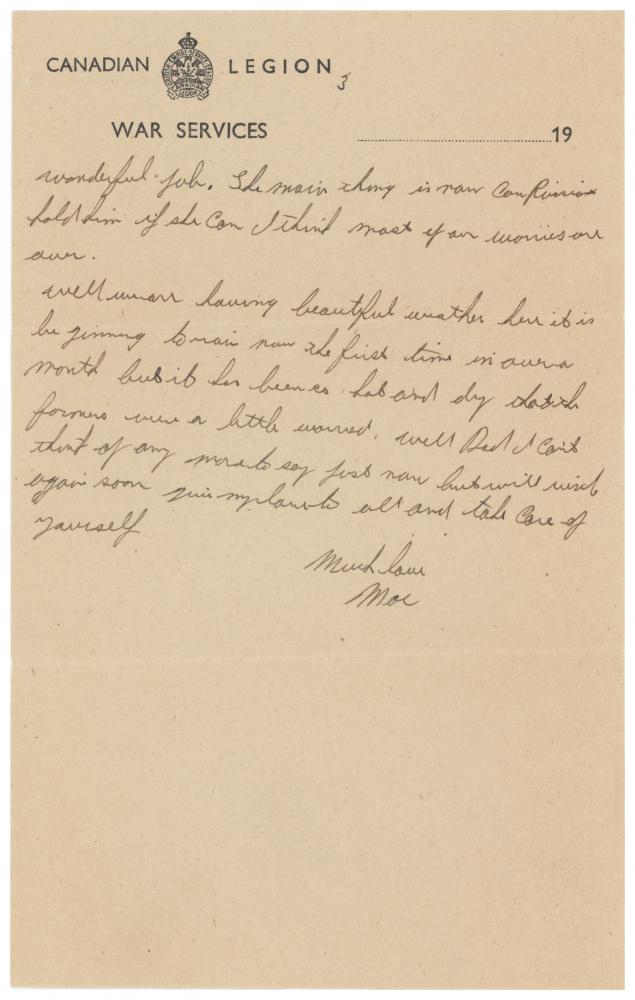 CANADIAN LEGION
3
WAR SERVICES 19
wonderful job. The main thing is now can Russia
hold him if she can I think most of our worries are
over.
Well we are having beautiful weather here it is
beginning to rain now the first time in over a
month but it has been so hot and dry that the
farmers were a little worried. Well Dad I can't
think of any more to say just now but will write
again soon give my love to all and take care of
yourself
Much love
Moe